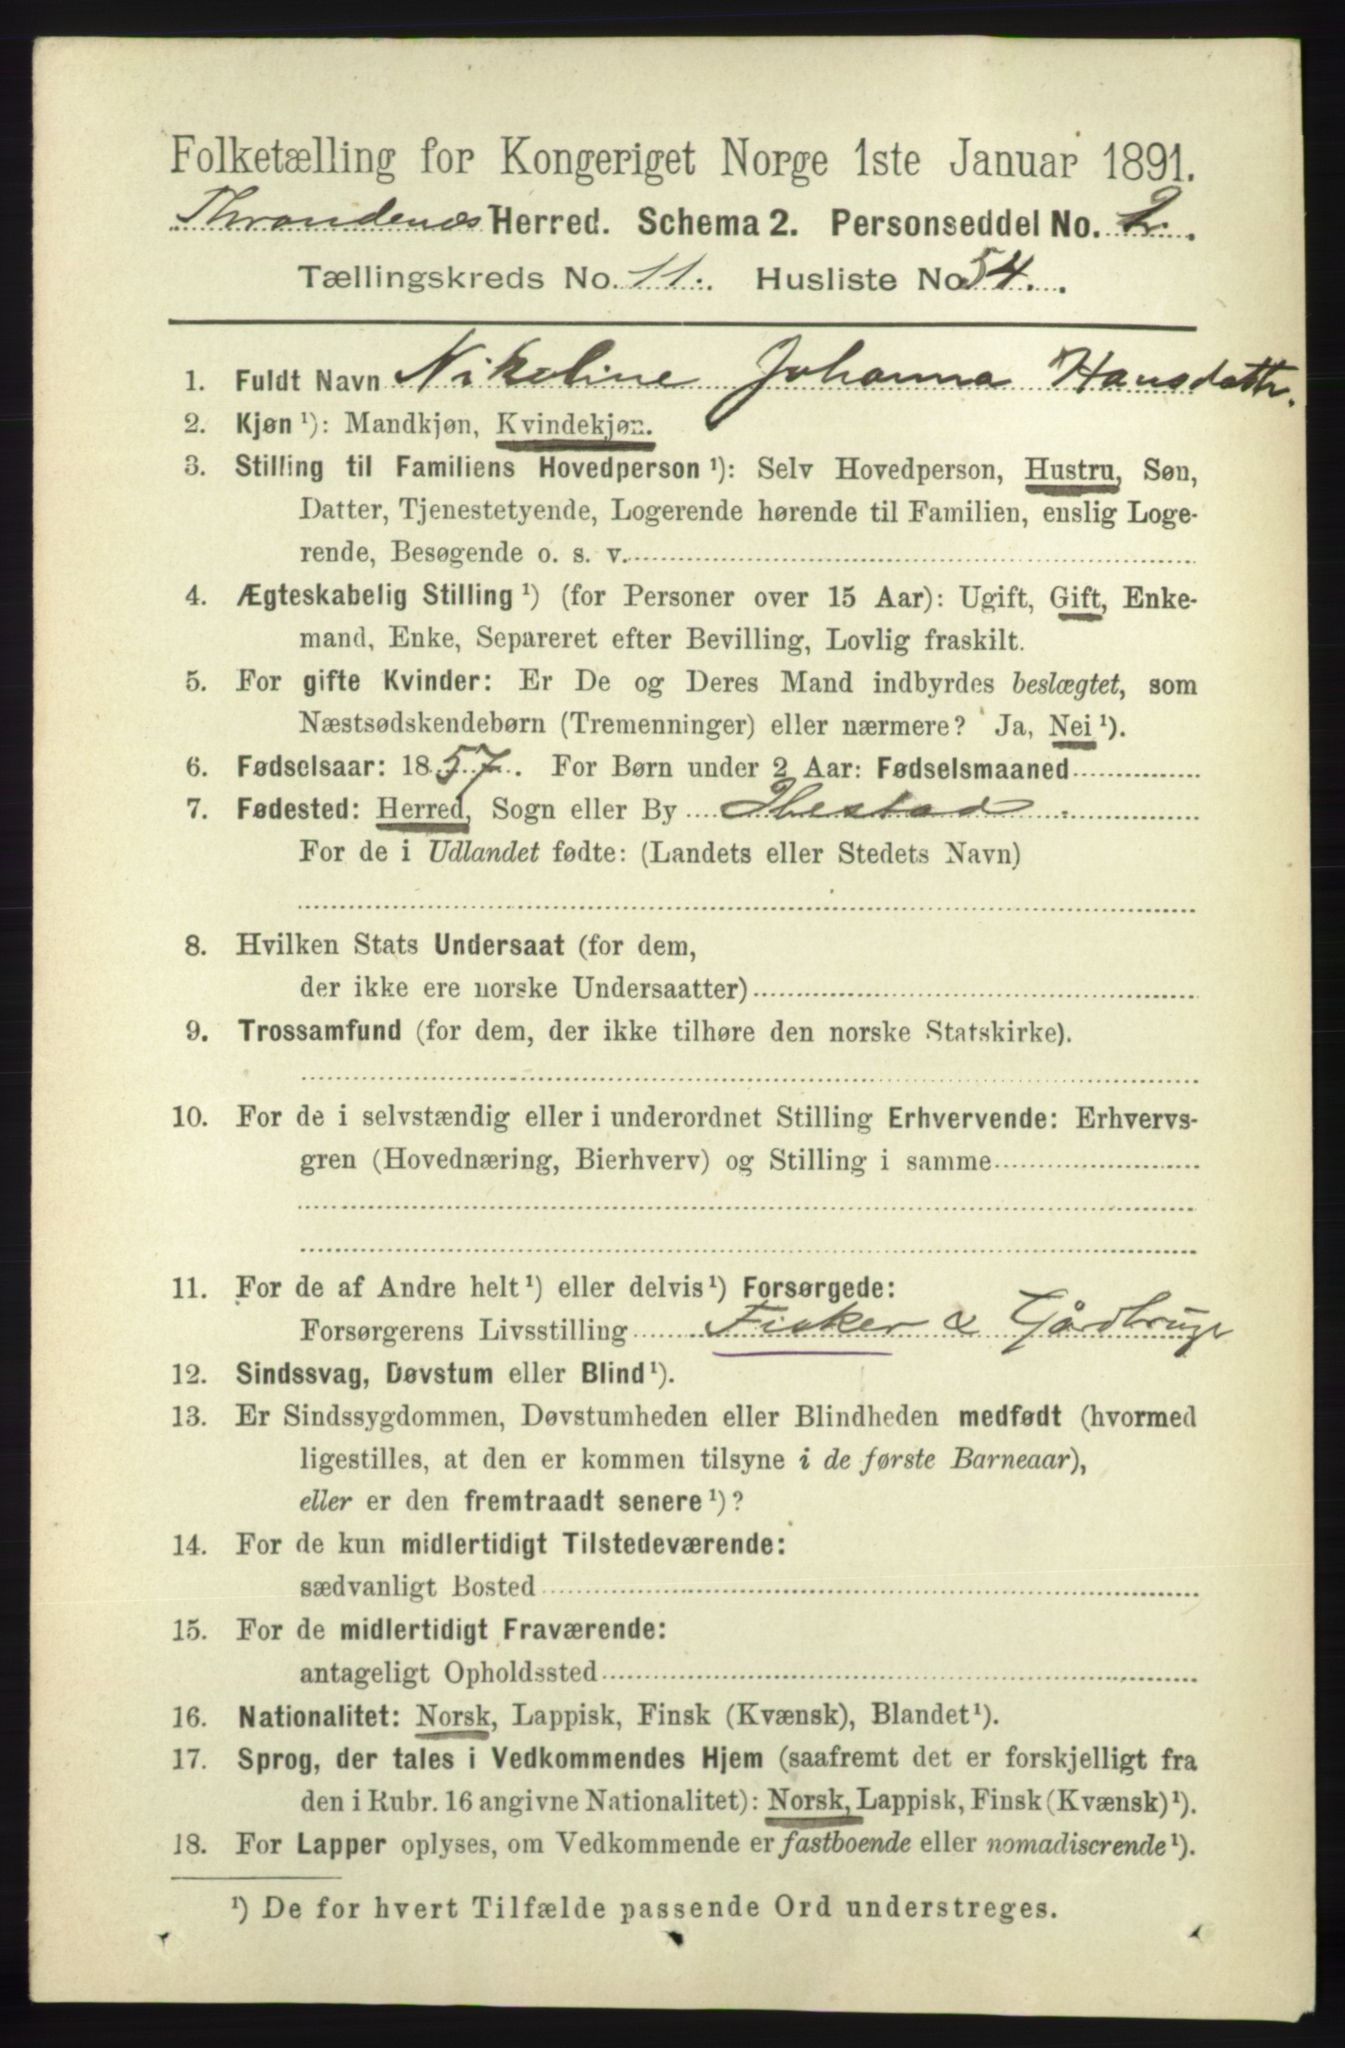 Folketælling for Kongeriget Norge 1ste Januar 1891.
Throndenæs Herred. Schema 2. Personseddel No. 2.
Tællingskreds No. 11. Husliste No 54.
1. Fuldt Navn Nikoline Johanna Hansdattr.
2. Kjøn ¹): Mandkjøn, Kvindekjøn.
3. Stilling til Familiens Hovedperson ¹): Selv Hovedperson, Hustru, Søn,
Datter, Tjenestetyende, Logerende hørende til Familien, enslig Loge-
rende, Besøgende o. s. v.
4. Ægteskabelig Stilling ¹) (for Personer over 15 Aar): Ugift, Gift, Enke-
mand, Enke, Separeret efter Bevilling, Lovlig fraskilt.
5. For gifte Kvinder: Er De og Deres Mand indbyrdes beslægtet, som
Næstsødskendebørn (Tremenninger) eller nærmere? Ja, Nei ¹).
6. Fødselsaar: 1857. For Børn under 2 Aar: Fødselsmaaned
7. Fødested: Herred, Sogn eller By Ibestad.
For de i Udlandet fødte: (Landets eller Stedets Navn)
8. Hvilken Stats Undersaat (for dem,
der ikke ere norske Undersaatter)
9. Trossamfund (for dem, der ikke tilhøre den norske Statskirke).
10. For de i selvstændig eller i underordnet Stilling Erhvervende: Erhvervs-
gren (Hovednæring, Bierhverv) og Stilling i samme
11. For de af Andre helt ¹) eller delvis ¹) Forsørgede:
Forsørgerens Livsstilling Fisker & Gårdbruger
12. Sindssvag, Døvstum eller Blind ¹).
13. Er Sindssygdommen, Døvstumheden eller Blindheden medfødt (hvormed
ligestilles, at den er kommen tilsyne i de første Barneaar),
eller er den fremtraadt senere ¹)?
14. For de kun midlertidigt Tilstedeværende:
sædvanligt Bosted
15. For de midlertidigt Fraværende:
antageligt Opholdssted
16. Nationalitet: Norsk, Lappisk, Finsk (Kvænsk), Blandet ¹).
17. Sprog, der tales i Vedkommendes Hjem (saafremt det er forskjelligt fra
den i Rubr. 16 angivne Nationalitet): Norsk, Lappisk, Finsk (Kvænsk) ¹).
18. For Lapper oplyses, om Vedkommende er fastboende eller nomadiserende ¹).
¹) De for hvert Tilfælde passende Ord understreges.